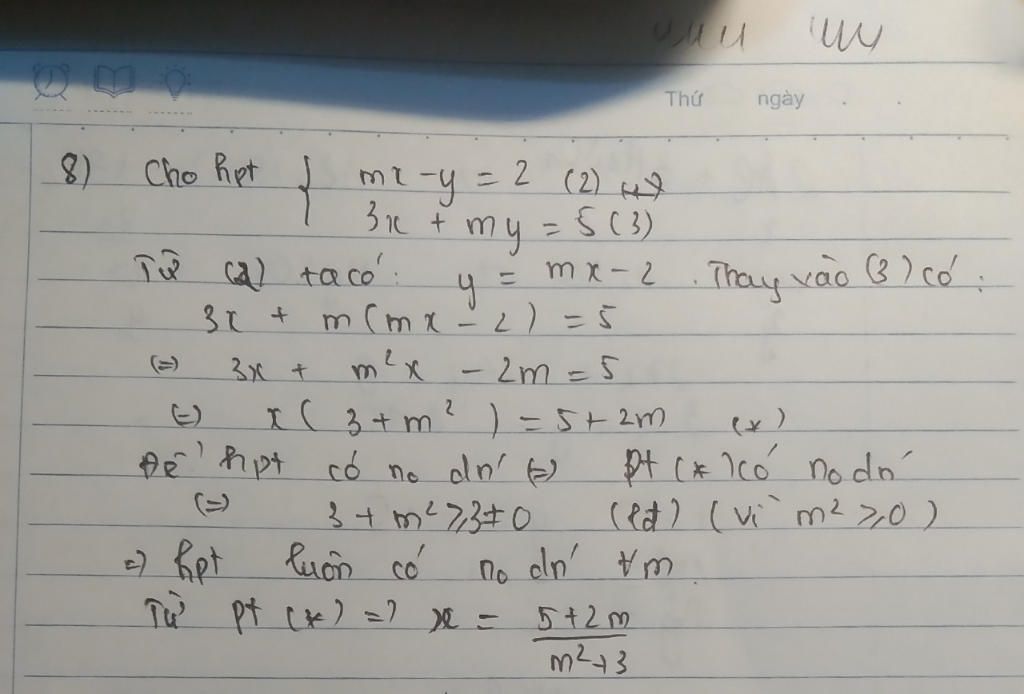 Thứ ngày . .
8) Cho hpt { mx - y = 2 (2)
3x + my = 5 (3)
Từ (2) ta có: y = mx - 2 . Thay vào (3) có :
3x + m(mx - 2) = 5
(=) 3x + m²x - 2m = 5
(=) x( 3 + m² ) = 5 + 2m (*)
Để hpt có no dn' (=) Pt (*) có no dn'
(=) 3 + m² ≥ 3 ≠ 0 (lđ) (vì m² ≥ 0)
=) hpt luôn có no dn' ∀m.
Từ pt (*) =) x = 5+2m / m²+3